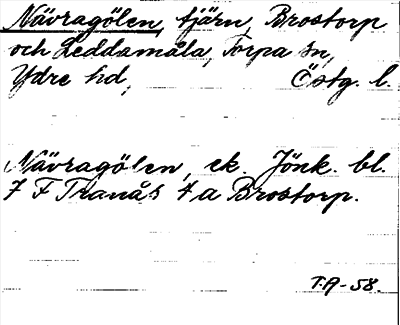 Nävragölen, tjärn, Brostorp
och Leddamåla, Torpa sn,
Ydre hd, Östg. l.
Nävragölen, ek. Jönk. bl.
7 F Tranås 4 a Brostorp.
T.A-58.